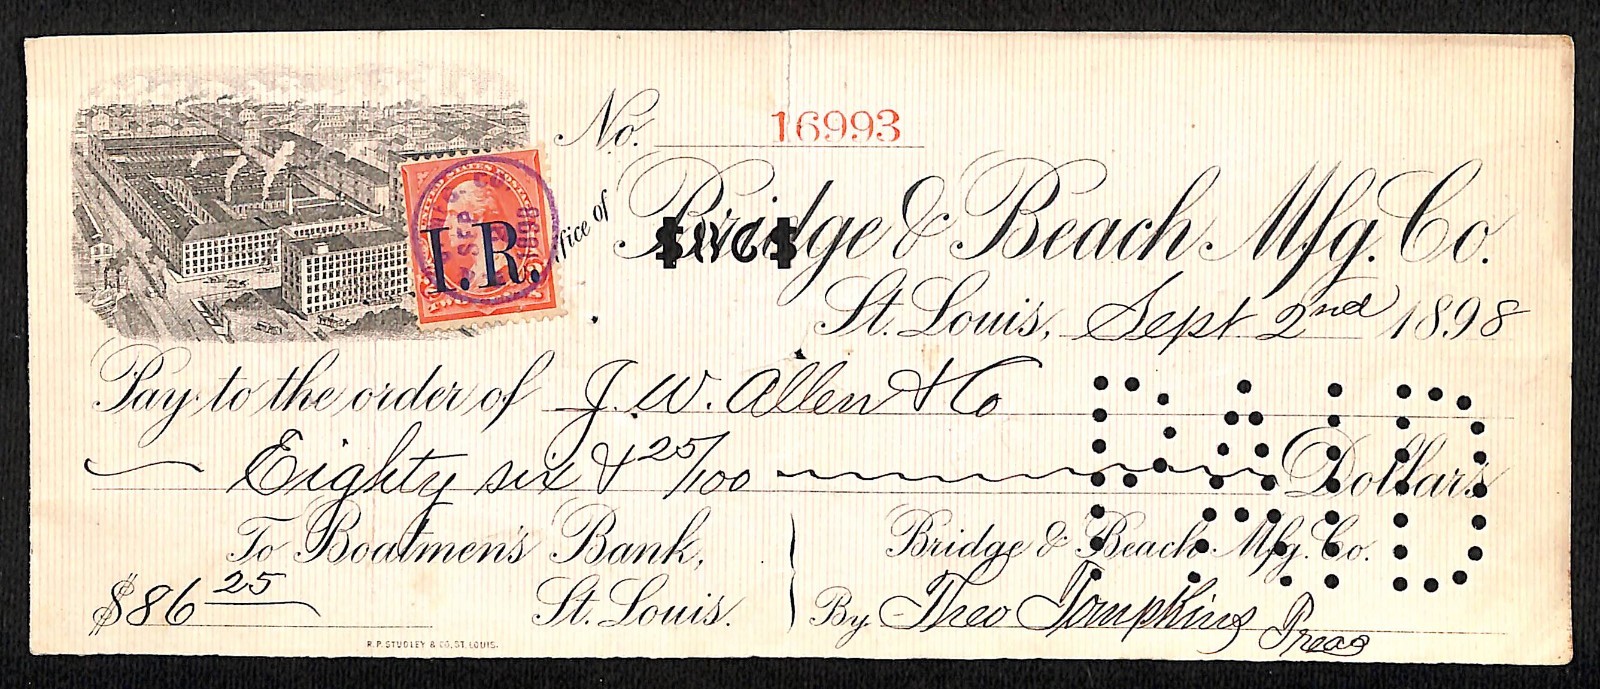 No. 16993
Office of Bridge & Beach Mfg. Co.
St. Louis, Sept 2nd 1898
UNITED STATES POSTAGE
I.R.
SEP 2 1898
TWO
Pay to the order of J. W. Allen & Co
Eighty six & 25/100 Dollars
PAID
To Boatmen's Bank,
St. Louis.
$86 25
Bridge & Beach Mfg. Co.
By Theo Tompkins Treas
R.P. STUDLEY & CO. ST. LOUIS.